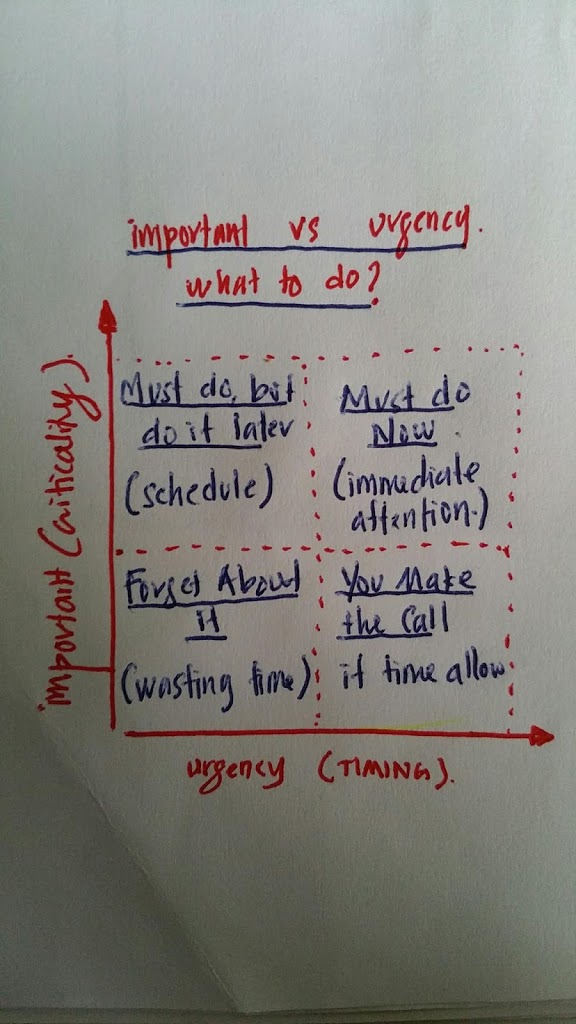 important vs urgency.
what to do?
important (criticality).
Must do, but
do it later
(schedule)
Must do
Now.
(immediate
attention.)
Forget About
it
(wasting time)
You Make
the Call
if time allow.
urgency (TIMING).